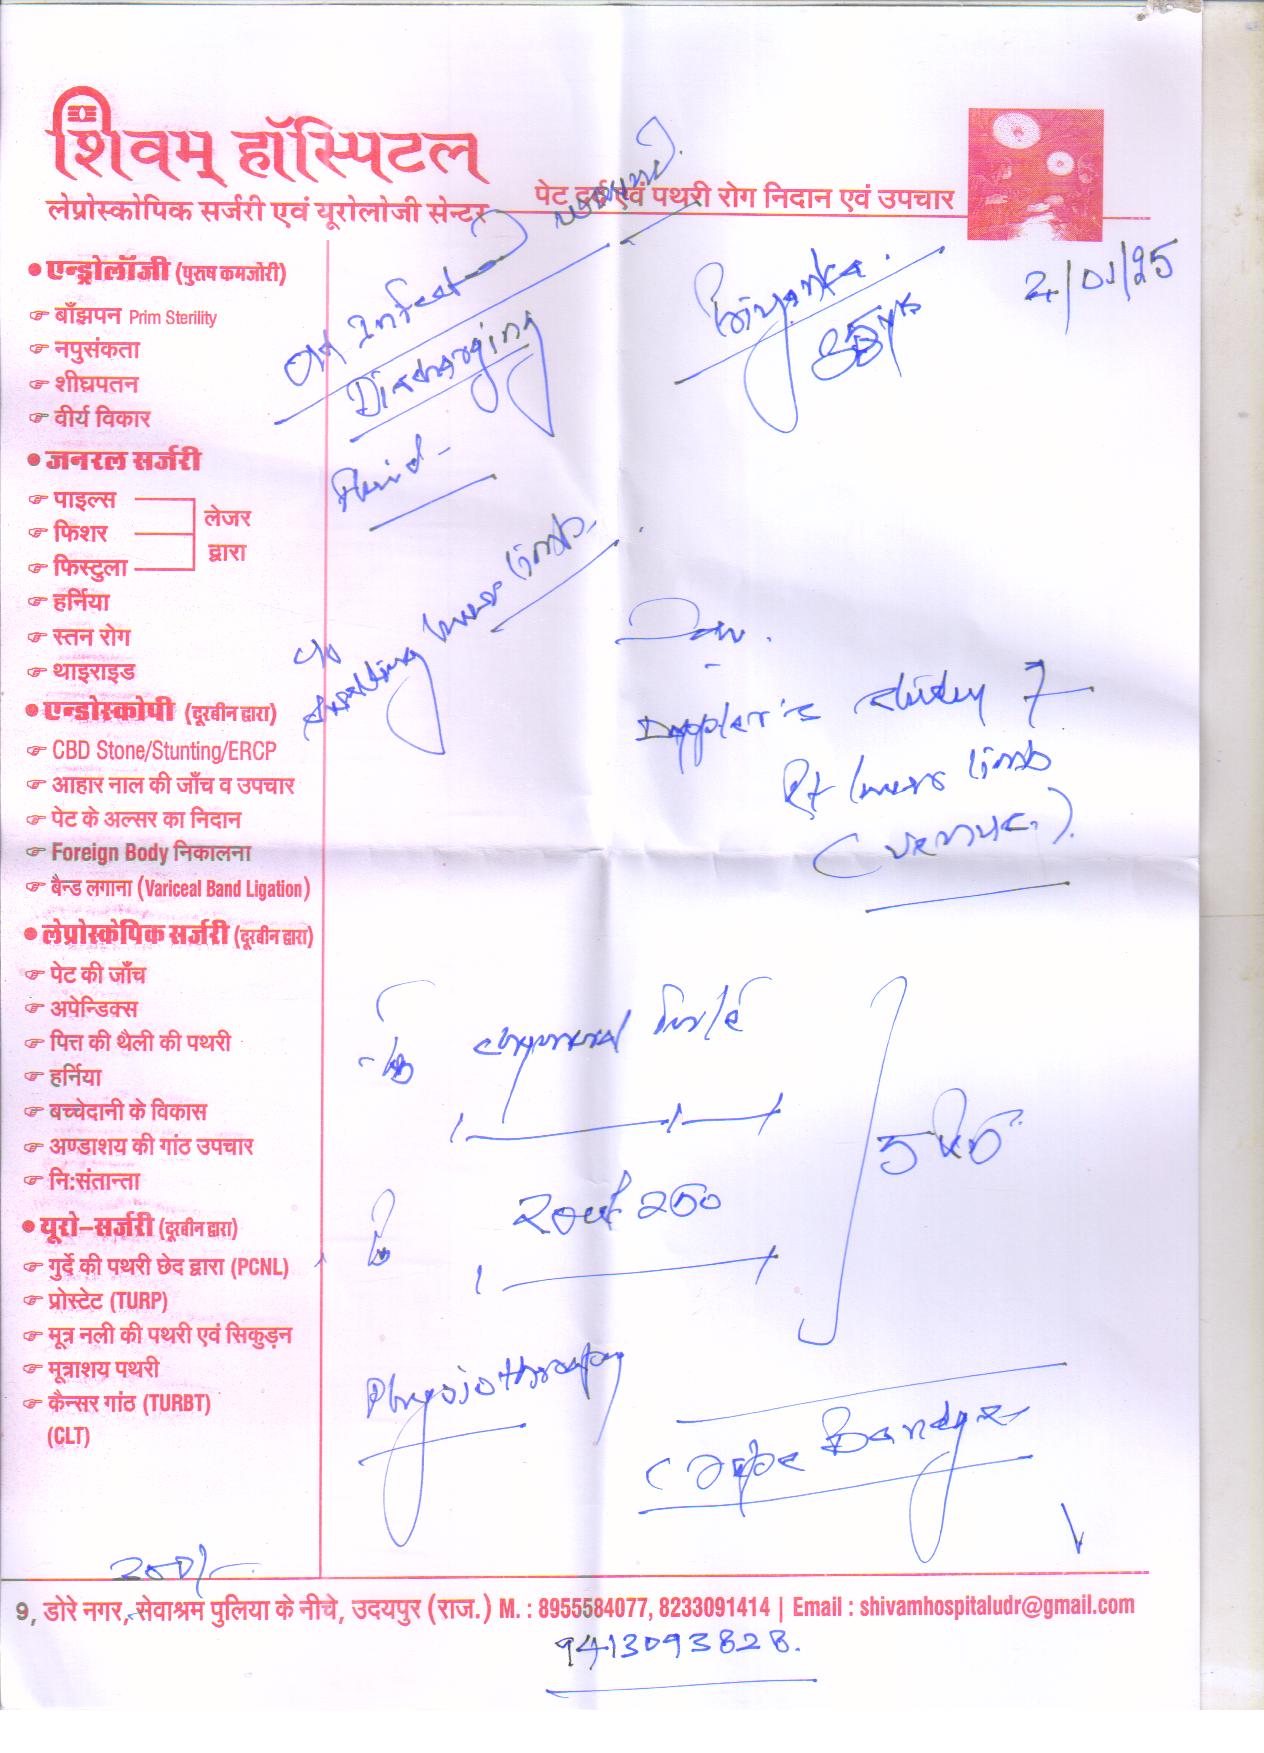 शिवम् हॉस्पिटल
लेप्रोस्कोपिक सर्जरी एवं यूरोलोजी सेन्टर
पेट दर्द एवं पथरी रोग निदान एवं उपचार
Priyanka
Old Infected
Discharging
swelling lower limb
Doppler's study
Rt lower limb
(venous)
250
Physiotherapy
Crepe Bandge
200/-
• एन्ड्रोलॉजी (पुरुष कमजोरी)
बाँझपन Prim Sterility
नपुसंकता
शीघ्रपतन
वीर्य विकार
• जनरल सर्जरी
पाइल्स
फिशर
फिस्टुला
लेजर
द्वारा
हर्निया
स्तन रोग
थाइराइड
• एन्डोस्कोपी (दूरबीन द्वारा)
CBD Stone/Stunting/ERCP
आहार नाल की जाँच व उपचार
पेट के अल्सर का निदान
Foreign Body निकालना
बैन्ड लगाना (Variceal Band Ligation)
• लेप्रोस्कोपिक सर्जरी (दूरबीन द्वारा)
पेट की जाँच
अपेन्डिक्स
पित्त की थैली की पथरी
हर्निया
बच्चेदानी के विकास
अण्डाशय की गांठ उपचार
नि:संतान्ता
• यूरो-सर्जरी (दूरबीन द्वारा)
गुर्दे की पथरी छेद द्वारा (PCNL)
प्रोस्टेट (TURP)
मूत्र नली की पथरी एवं सिकुड़न
मूत्राशय पथरी
कैन्सर गांठ (TURBT)
(CLT)
9, डोरे नगर, सेवाश्रम पुलिया के नीचे, उदयपुर (राज.) M. : 8955584077, 8233091414 | Email : shivamhospitaludr@gmail.com
9413093828.